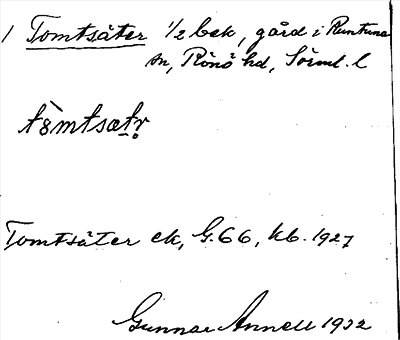 1 Tomtsäter 1/2 bek, gård i Runtuna
sn, Rönö hd, Sörml. l
Tomtsäter ek, G.66, kb. 1927
Gunnar Annell 1932